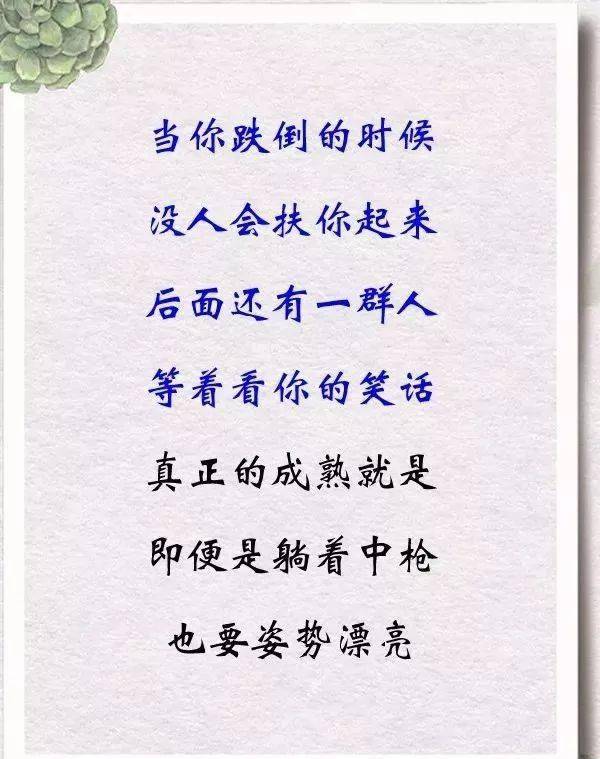 当你跌倒的时候
没人会扶你起来
后面还有一群人
等着看你的笑话
真正的成熟就是
即便是躺着中枪
也要姿势漂亮